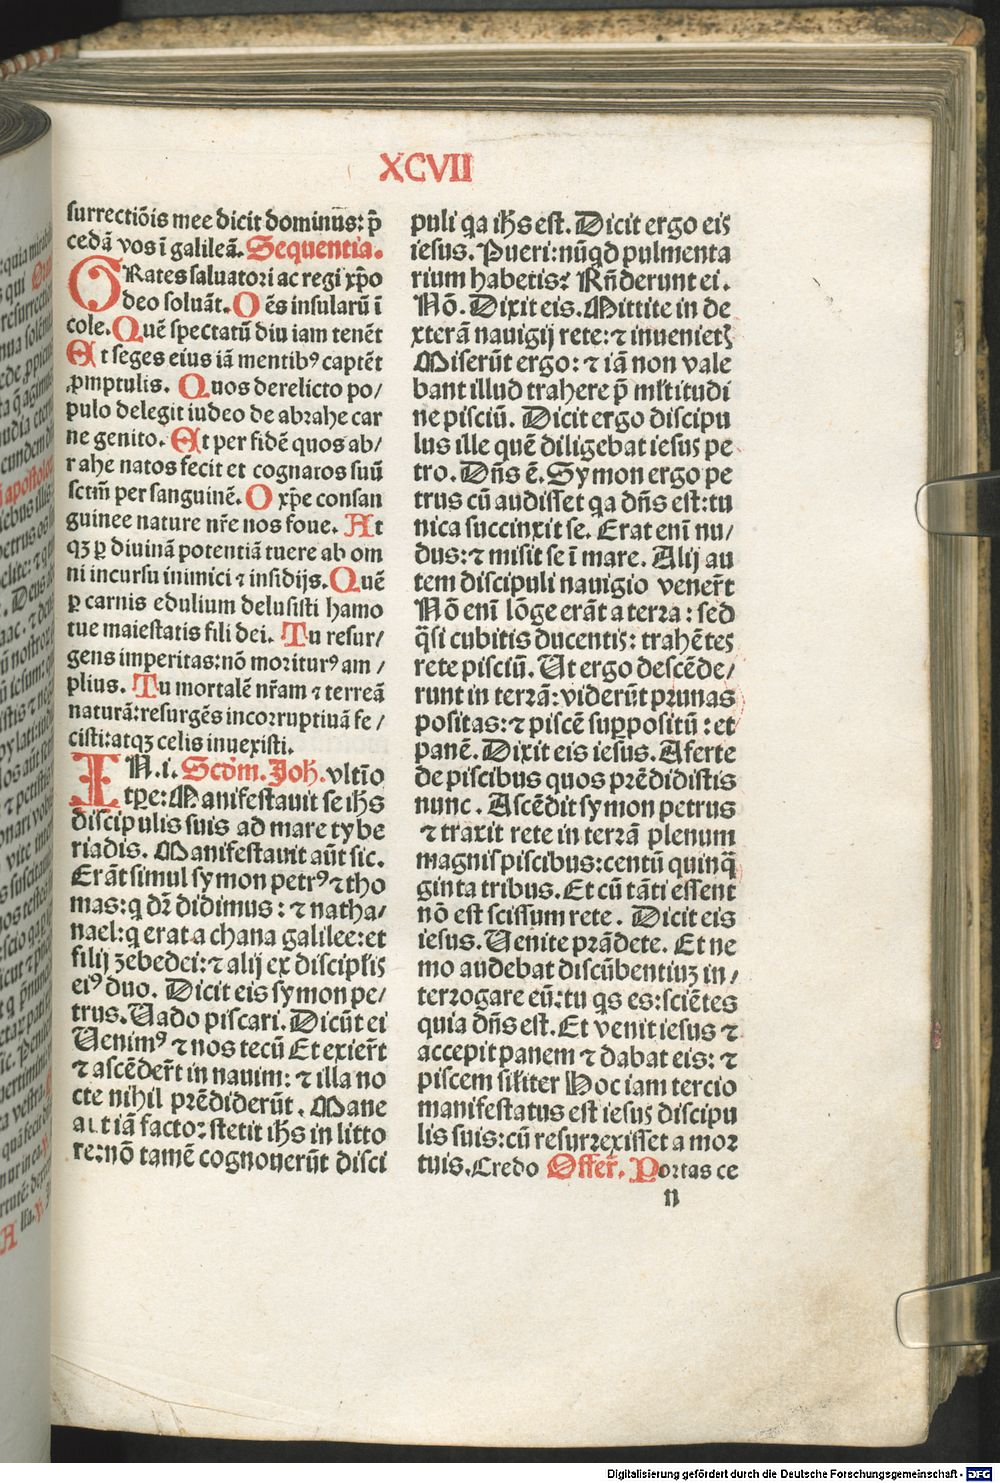 XCVII
surrectiõis mee dicit dominus: p̃
cedã vos ĩ galileã. Sequentia.
ORates saluatori ac regi xp̃o
deo soluãt. O ẽs insularũ ĩ
cole. Quẽ spectatũ diu iam tenẽt
Et seges eius iã mentibꝰ captẽt
ꝓmptulis. Quos derelicto po/
pulo delegit iudeo de abrahe car
ne genito. Et per fidẽ quos ab/
rahe natos fecit et cognatos suũ
sctm̃ per sanguinẽ. O xp̃e consan
guinee nature nr̃e nos foue. At
qꝫ ꝑ diuinã potentiã tuere ab om
ni incursu inimici ⁊ insidijs. Quẽ
ꝑ carnis edulium delusisti hamo
tue maiestatis fili dei. Tu resur/
gens imperitas: nõ moriturꝰ am/
plius. Tu mortalẽ nr̃am ⁊ terreã
naturã: resurgẽs incorruptiuã fe/
cisti: atqꝫ celis inuexisti.
IN.i. Scdm̃. Joh. vltĩo
tp̃e: Manifestauit se ih̃s
discipulis suis ad mare tybe
riadis. Manifestauit aũt sic.
Erãt simul symon petrꝰ ⁊ tho
mas: q dr̃ didimus: ⁊ natha/
nael: q erat a chana galilee: et
filij zebedei: ⁊ alij ex disciplis
eiꝰ duo. Dicit eis symon pe/
trus. Uado piscari. Dicũt ei
Uenimꝰ ⁊ nos tecũ Et exier̃t
⁊ ascẽder̃t in nauim: ⁊ illa no
cte nihil prẽdiderũt. Mane
aut iã facto: stetit ih̃s in litto
re: nõ tamẽ cognouerũt disci
puli qa ih̃s est. Dicit ergo eis
iesus. Pueri: nũqd pulmenta
rium habetis? Rñderunt ei.
Nõ. Dixit eis. Mittite in de
xterã nauigij rete: ⁊ inuenietꝭ
Miserũt ergo: ⁊ iã non vale
bant illud trahere p̃ mltitudi
ne pisciũ. Dicit ergo discipu
lus ille quẽ diligebat iesus pe
tro. Dñs ẽ. Symon ergo pe
trus cũ audisset qa dñs est: tu
nica succinxit se. Erat enĩ nu/
dus: ⁊ misit se ĩ mare. Alij au
tem discipuli nauigio vener̃t
Nõ enĩ lõge erãt a terra: sed
q̃si cubitis ducentis: trahẽtes
rete pisciũ. Ut ergo descẽde/
runt in terrã: viderũt prunas
positas: ⁊ piscẽ suppositũ: et
panẽ. Dixit eis iesus. Aferte
de piscibus quos prẽdidistis
nunc. Ascẽdit symon petrus
⁊ traxit rete in terrã plenum
magnis piscibus: centũ quinq̃
ginta tribus. Et cũ tãti essent
nõ est scissum rete. Dicit eis
iesus. Uenite prãdete. Et ne
mo audebat discũbentiuꝫ in/
terrogare eũ: tu qs es: sciẽtes
quia dñs est. Et venit iesus ⁊
accepit panem ⁊ dabat eis: ⁊
piscem siłiter Hoc iam tercio
manifestatus est iesus discipu
lis suis: cũ resurrexisset a mor
tuis. Credo Offer̃. Portas ce
n
Digitalisierung gefördert durch die Deutsche Forschungsgemeinschaft - DFG